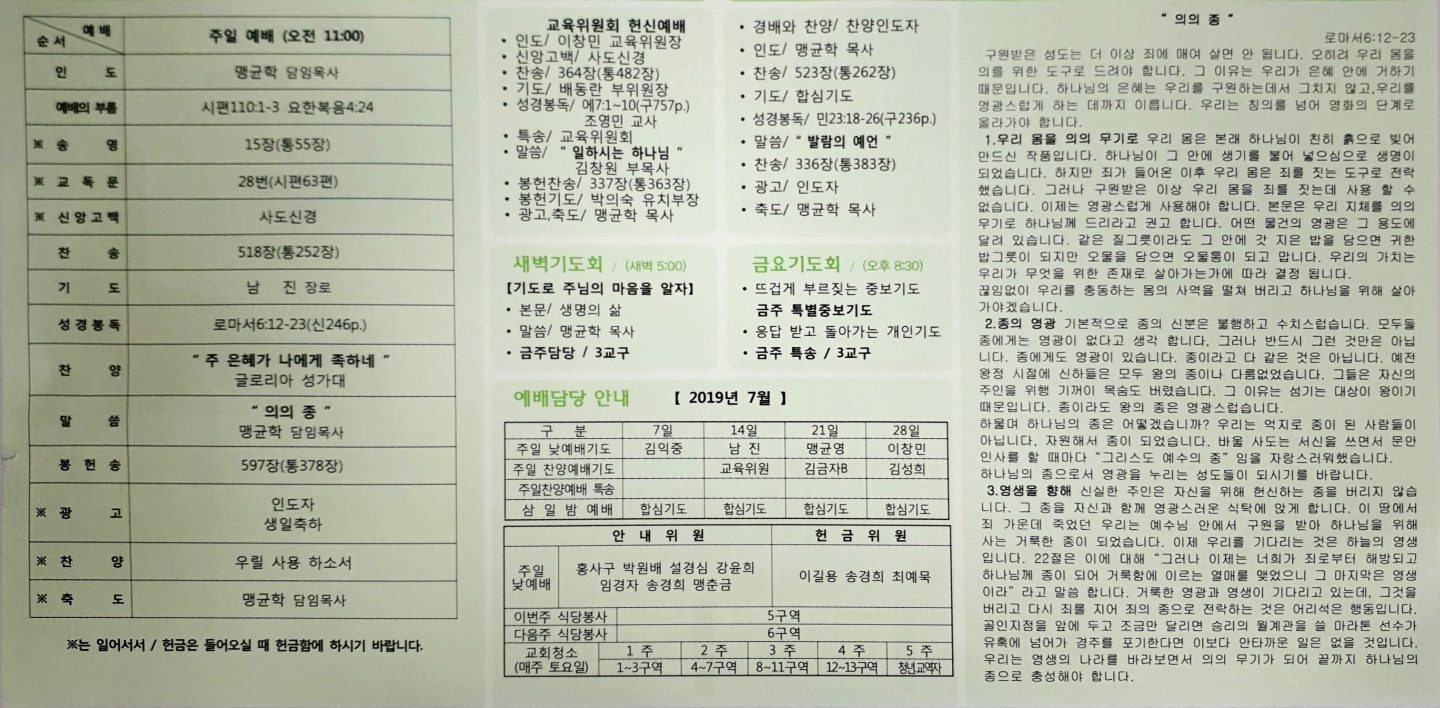 예배
순서
주일 예배 (오전 11:00)
인 도
맹균학 담임목사
예배의 부름
시편110:1-3 요한복음4:24
※ 송 영
15장(통55장)
※ 교 독 문
28번(시편63편)
※ 신앙고백
사도신경
찬 송
518장(통252장)
기 도
남 진 장로
성경봉독
로마서6:12-23(신246p.)
찬 양
“ 주 은혜가 나에게 족하네 ”
글로리아 성가대
말 씀
“ 의의 종 ”
맹균학 담임목사
봉 헌 송
597장(통378장)
※ 광 고
인도자
생일축하
※ 찬 양
우릴 사용 하소서
※ 축 도
맹균학 담임목사
※는 일어서서 / 헌금은 들어오실 때 헌금함에 하시기 바랍니다.
교육위원회 헌신예배
• 인도/ 이창민 교육위원장
• 신앙고백/ 사도신경
• 찬송/ 364장(통482장)
• 기도/ 배동란 부위원장
• 성경봉독/ 에7:1~10(구757p.)
조영민 교사
• 특송/ 교육위원회
• 말씀/ “ 일하시는 하나님 ”
김창원 부목사
• 봉헌찬송/ 337장(통363장)
• 봉헌기도/ 박의숙 유치부장
• 광고,축도/ 맹균학 목사
• 경배와 찬양/ 찬양인도자
• 인도/ 맹균학 목사
• 찬송/ 523장(통262장)
• 기도/ 합심기도
• 성경봉독/ 민23:18-26(구236p.)
• 말씀/ “ 발람의 예언 ”
• 찬송/ 336장(통383장)
• 광고/ 인도자
• 축도/ 맹균학 목사
새벽기도회 / (새벽 5:00)
【기도로 주님의 마음을 알자】
• 본문/ 생명의 삶
• 말씀/ 맹균학 목사
• 금주담당 / 3교구
금요기도회 / (오후 8:30)
• 뜨겁게 부르짖는 중보기도
금주 특별중보기도
• 응답 받고 돌아가는 개인기도
• 금주 특송 / 3교구
예배담당 안내 【 2019년 7월 】
구 분 7일 14일 21일 28일
주일 낮예배기도 김익중 남 진 맹균영 이창민
주일 찬양예배기도 교육위원 김금자B 김성희
주일찬양예배 특송
삼 일 밤 예배 합심기도 합심기도 합심기도 합심기도
안 내 위 원 헌 금 위 원
주일
낮예배
홍사구 박원배 설경심 강윤희
임경자 송경희 맹춘금
이길용 송경희 최예묵
이번주 식당봉사 5구역
다음주 식당봉사 6구역
교회청소
(매주 토요일)
1 주 2 주 3 주 4 주 5 주
1~3구역 4~7구역 8~11구역 12~13구역 청년교역자
“ 의의 종 ”
로마서6:12-23
구원받은 성도는 더 이상 죄에 매여 살면 안 됩니다. 오히려 우리 몸을
의를 위한 도구로 드려야 합니다. 그 이유는 우리가 은혜 안에 거하기
때문입니다. 하나님의 은혜는 우리를 구원하는데서 그치지 않고,우리를
영광스럽게 하는 데까지 이릅니다. 우리는 칭의를 넘어 영화의 단계로
올라가야 합니다.
1.우리 몸을 의의 무기로 우리 몸은 본래 하나님이 친히 흙으로 빚어
만드신 작품입니다. 하나님이 그 안에 생기를 불어 넣으심으로 생명이
되었습니다. 하지만 죄가 들어온 이후 우리 몸은 죄를 짓는 도구로 전락
했습니다. 그러나 구원받은 이상 우리 몸을 죄를 짓는데 사용 할 수
없습니다. 이제는 영광스럽게 사용해야 합니다. 본문은 우리 지체를 의의
무기로 하나님께 드리라고 권고 합니다. 어떤 물건의 영광은 그 용도에
달려 있습니다. 같은 질그릇이라도 그 안에 갓 지은 밥을 담으면 귀한
밥그릇이 되지만 오물을 담으면 오물통이 되고 맙니다. 우리의 가치는
우리가 무엇을 위한 존재로 살아가는가에 따라 결정 됩니다.
끊임없이 우리를 충동하는 몸의 사역을 떨쳐 버리고 하나님을 위해 살아
가야겠습니다.
2.종의 영광 기본적으로 종의 신분은 불행하고 수치스럽습니다. 모두들
종에게는 영광이 없다고 생각 합니다. 그러나 반드시 그런 것만은 아닙
니다. 종에게도 영광이 있습니다. 종이라고 다 같은 것은 아닙니다. 예전
왕정 시절에 신하들은 모두 왕의 종이나 다름없었습니다. 그들은 자신의
주인을 위행 기꺼이 목숨도 버렸습니다. 그 이유는 섬기는 대상이 왕이기
때문입니다. 종이라도 왕의 종은 영광스럽습니다.
하물며 하나님의 종은 어떻겠습니까? 우리는 억지로 종이 된 사람들이
아닙니다. 자원해서 종이 되었습니다. 바울 사도는 서신을 쓰면서 문안
인사를 할 때마다 “그리스도 예수의 종” 임을 자랑스러워했습니다.
하나님의 종으로서 영광을 누리는 성도들이 되시기를 바랍니다.
3.영생을 향해 신실한 주인은 자신을 위해 헌신하는 종을 버리지 않습
니다. 그 종을 자신과 함께 영광스러운 식탁에 앉게 합니다. 이 땅에서
죄 가운데 죽었던 우리는 예수님 안에서 구원을 받아 하나님을 위해
사는 거룩한 종이 되었습니다. 이제 우리를 기다리는 것은 하늘의 영생
입니다. 22절은 이에 대해 “그러나 이제는 너희가 죄로부터 해방되고
하나님께 종이 되어 거룩함에 이르는 열매를 맺었으니 그 마지막은 영생
이라” 라고 말씀 합니다. 거룩한 영광과 영생이 기다리고 있는데, 그것을
버리고 다시 죄를 지어 죄의 종으로 전락하는 것은 어리석은 행동입니다.
골인지점을 앞에 두고 조금만 달리면 승리의 월계관을 쓸 마라톤 선수가
유혹에 넘어가 경주를 포기한다면 이보다 안타까운 일은 없을 것입니다.
우리는 영생의 나라를 바라보면서 의의 무기가 되어 끝까지 하나님의
종으로 충성해야 합니다.